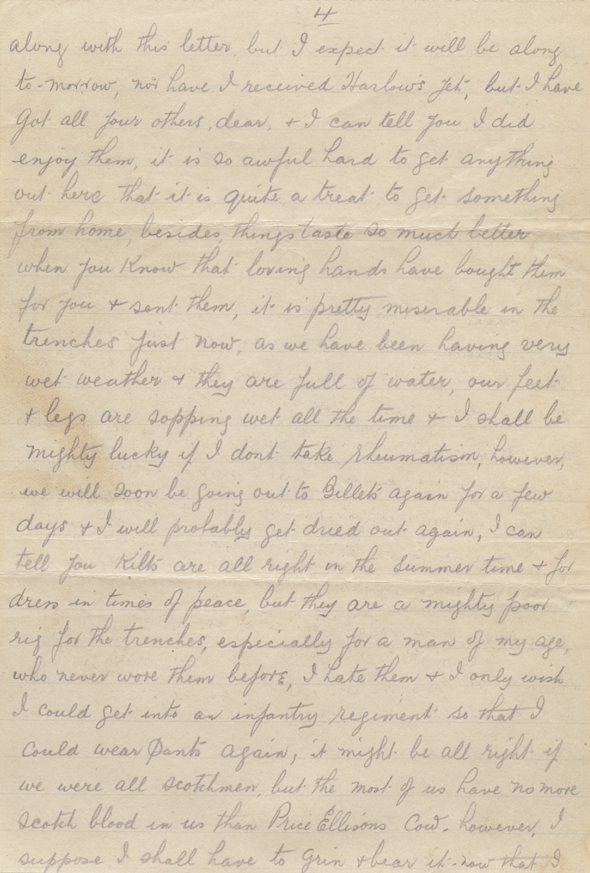 4
along with this letter but I expect it will be along
to-morrow, nor have I received Harlow's yet, but I have
got all your others, dear, & I can tell you I did
enjoy them, it is so awful hard to get anything
out here that it is quite a treat to get something
from home, besides, things taste so much better
when you know that loving hands have bought them
for you & sent them, it is pretty miserable in the
trenches just now, as we have been having very
wet weather & they are full of water, our feet
& legs are sopping wet all the time & I shall be
mighty lucky if I dont take rheumatism, however,
we will soon be going out to Billets again for a few
days & I will probably get dried out again, I can
tell you Kilts are all right in the summer time & for
dress in times of peace, but they are a mighty poor
rig for the trenches, especially for a man of my age,
who never wore them before, I hate them & I only wish
I could get into an infantry regiment so that I
could wear Pants again, it might be all right if
we were all scotchmen, but the most of us have no more
scotch blood in us than Price Ellisons Cow. however, I
suppose I shall have to grin & bear it now that I